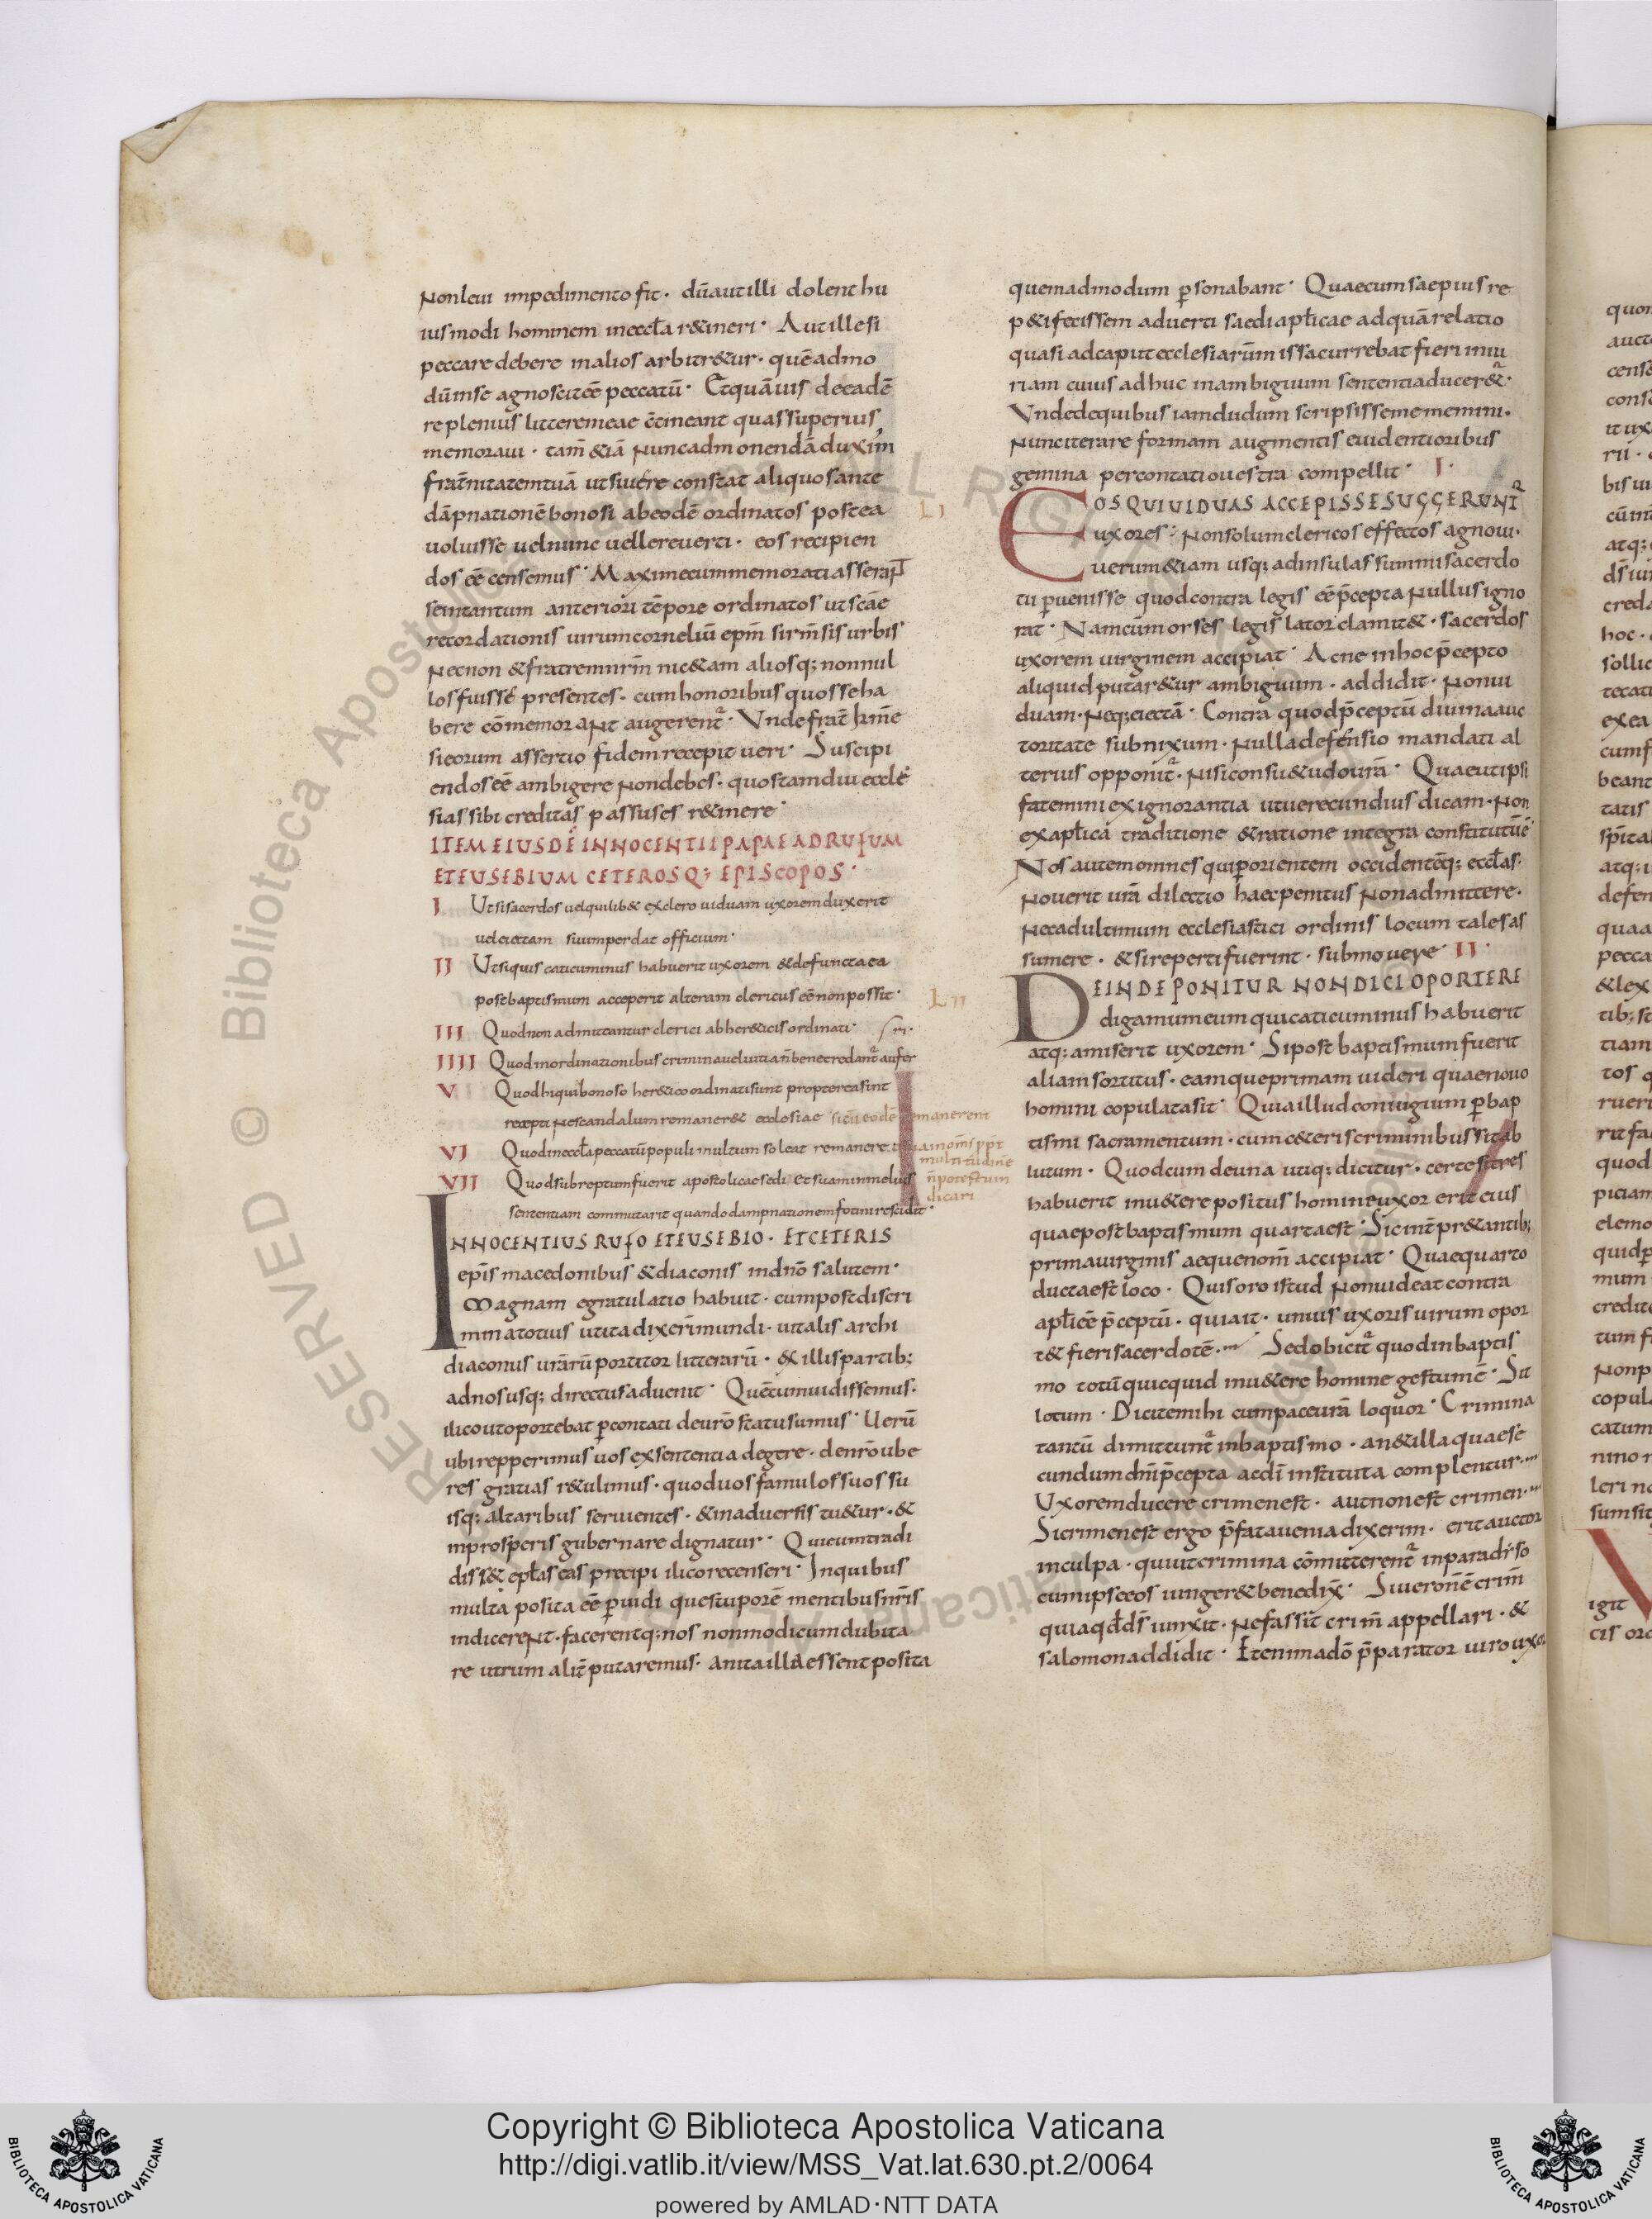 Nonleui impedimento fit· dūautilli dolent hu
iusmodi hominem ineccła r&ineri· Autillesi
peccaredebere inalios arbitr&ur· quēadmo
dūinse agnoscitēē peccatū· Etquāuis deeadē
re plenius litteremeae c̄tineant quassuperius
memoraui· tam̄ &iā Nuncadmonendā duxim̄
frat̄nitatemtuā utsiuere constat aliquosante
dāpnationē bonosi abeodē ordinatos postea
uoluisse uelnunc uellereuerti· eos recipien
dos ēē censemus· Maximecummemorati asserant
sentantum anteriori tēpore ordinatos utscāe
recordationis uirumcorneliū epm̄ sirm̄sis urbis
Necnon &fratremnrm̄ nic&am aliosq; nonnul
losfuisse presentes· cumhonoribus quosseha
bere cōmemoraNt augerent̄· Undefrat̄
sieorum assertio fidemrecepit ueri· Suscipi
endosēē ambigere Nondebes· quostamdiu eccle
siassibi creditas passuses r&inere·
ITEM EIUSDĒ INNOCENTII PAPAE AD RUFUM
ET EUSEBIUM CETEROSQ; EPISCOPOS·
I Utsisacerdos uelquilib& exclero uiduam uxoremduxerit
ueleiectam suumperdat officium·
II Utsiquis caticuminus habuerit uxorem &defunctaea
postbaptismum acceperit alteram clericus ēēnonpossit·
III Quodnon admittantur clerici abher&icis ordinati·
IIII Quodinordinationibus crimina ueluitia n̄benecredant̄ aufer ri·
V Quodhiquibonoso her&ico ordinatisunt proptereasint
recepti Nescandalum remaner& ecclesiae
VI Quodineccła peccatū populi inultum soleat remanere
VII Quodsubreptumfuerit apostolicaesedi etsuaminmelius
sententiam commutarit quandodampnationemfotinirescidit·
INNOCENTIUS RUFO ET EUSEBIO· ET CETERIS
epis̄ macedonibus &diaconis indn̄o salutem·
Magnam egratulatio habuit· cumpostdiscri
minatotius utitadixerim̄undi· uitalis archi
diaconus urārū portitor litterarū· exillispartib;
adnosusq; directusaduenit· Quēcumuidissemus·
ilicoutoportebat p̄contati deurō statusumus· Uerū
ubirepperimus uos exsententia degere· denrōube
res gratias r&ulimus· quoduosfamulossuos su
isq; altaribus seruientes· &inaduersis tu&ur· &
inprosperis gubernare dignatur· Quicumtradi
diss& epłas eas precipi ilicorecenseri· Inquibus
multa posita ēē p̄uidi questuporē mentibusnris̄
indicereNt· facerentq; nos nonmodicumdubita
re utrum alit̄ putaremus· anitailla essent posita
LI
LII
quemadmodum p̄sonabant· Quaecumsaepiusre
p&ifecissem aduerti saediapłicae adquārelatio
quasi adcaputecclesiarūm issacurrebat fieri iniu
riam cuius adhuc inambiguum sententiaducer&̄·
Undedequibus iamdudum scripsissemememini·
Nunciterare formam augmentis euidentioribus
gemina percontatiouestra compellit· I·
EOS QUI UIDUAS ACCEPISSE SUGGERUNT̄
uxores· Nonsolumclericos effectos agnoui·
uerum&iam usq; adinsulas summisacerdo
tii p̄uenisse quodcontra legis ēē p̄cepta Nullus igno
rat· Namcūmorses legis lator clamit&· sacerdos
uxorem uirginem accipiat· Acne inhocp̄cepto
aliquid putar&ur ambiguum· addidit· Nonui
duam· Neq;eiectā· Contra quodp̄ceptū diuinaauc
toritate subnixum· Nulladefensio mandati al
terius opponit̄· Nisiconsu&udourā· Quaeutipsi
fatemini exignorantia utuerecundius dicam· Non
exapłica traditione &ratione integra constitutūē·
Nosautemomnes quip̄orientem occidentēq; eccłas·
Nouerit urā dilectio haecpenitus Nonadmittere·
Necadultimum ecclesiastici ordinis locum tales as
sumere· &sirepertifuerint· submouere· II·
DEINDE PONITUR NON DICI OPORTERE
digamumeumquicaticuminus habuerit
atq; amiserit uxorem· Sipost baptismumfuerit
aliamsortitus· eamqueprimam uideri quaenouo
homini copulatasit· Quiaillud coniugium p̄bap
tismi sacramentum· cumc&eriscriminibussitab
lutum· Quodcum deuna utiq; dicitur· certesitres
habuerit inu&ere positus homineuxor erit eius
quaepostbaptismum quartaest· Sicint̄pr&antib;
primauirginis aequenom̄ accipiat· Quaequarto
ductaest loco· Quisoro istud Nonuideatcontra
apłicē p̄ceptū· quiait· unius uxoris uirum opor
t& fierisacerdotē· Sedobicit̄ quodinbaptis
mo totūquicquid inu&ere homine gestumē· Sit
lotum· Dicitemihi cumpaceurā loquor· Crimina
tantū dimittunt̄ inbaptismo· an&illaquaese
cundumdnīp̄cepta acdī instituta complentur·
Uxoremducere crimenest· autnonest crimen·
Sicrimenest ergo p̄fataueniadixerim· eritauctor
inculpa· quiutcrimina cōmitterent̄ inparadiso
cumipseeos iunger& benedix̄· Siueronēcrim̄
quiaqdd̄s̄ iunxit· Nefassit crim̄ appellari· &
salomonaddidit· Etenimadō p̄paratur uirouxor
Copyright © Biblioteca Apostolica Vaticana
http://digi.vatlib.it/view/MSS_Vat.lat.630.pt.2/0064
powered by AMLAD·NTT DATA